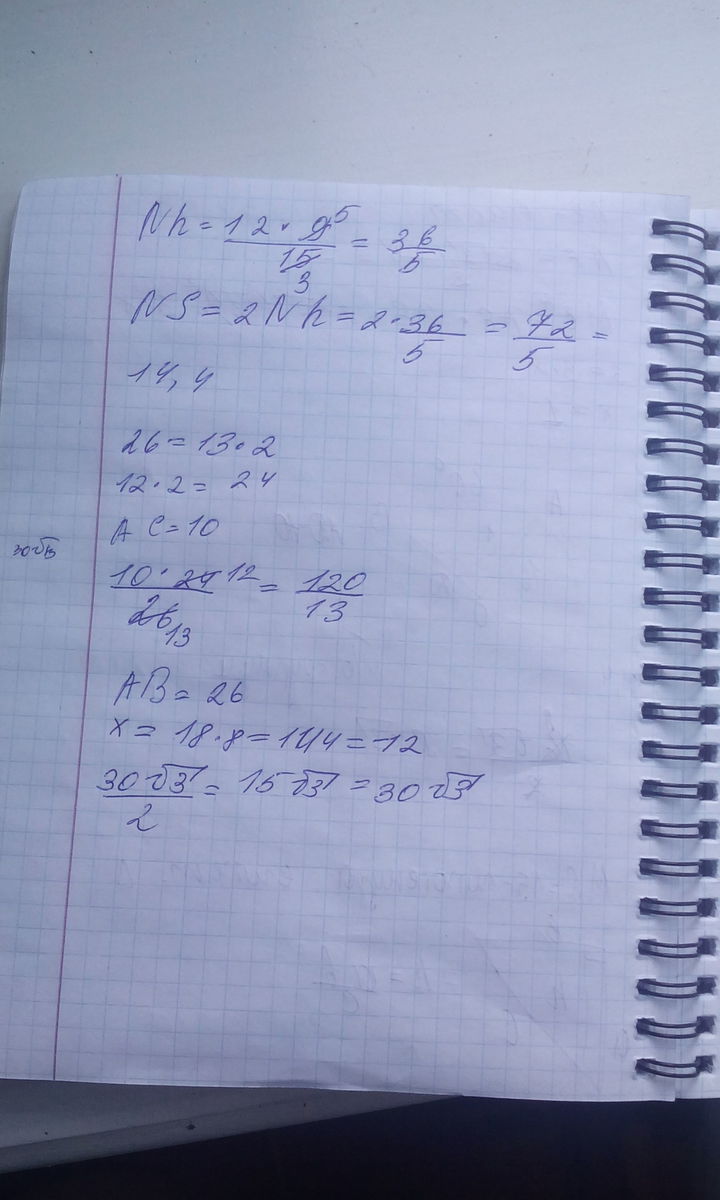 Nh = 12 · 9 5 / 15 3 = 36/5
NS = 2Nh = 2 · 36/5 = 72/5 =
14,4
26 = 13 · 2
12 · 2 = 24
AC = 10
30√3
10 · 24 12 / 26 13 = 120/13
AB = 26
x = 18 · 8 = 144 = 12
30√3/2 = 15√3 = 30√3